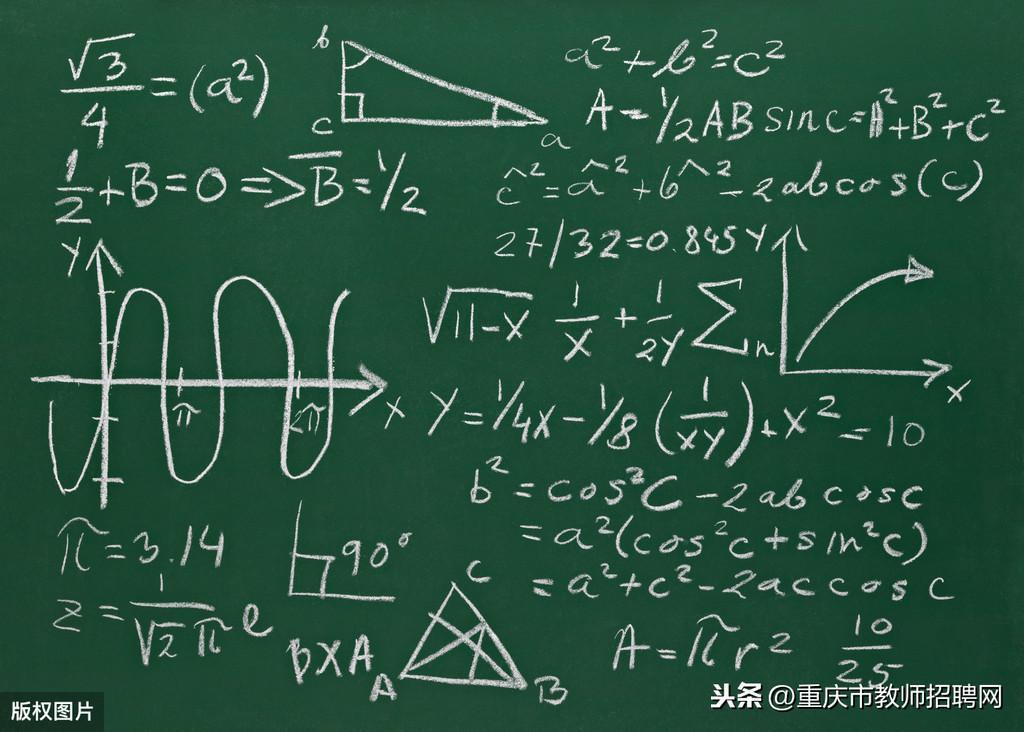 √3/4 = (a²)
b
c
a
a² + b² = c²
A - 1/2 AB sin c = A² + B² + C²
1/2 + B = 0 => B̅ = 1/2
ĉ² = â² + b^² - 2ab cos(c)
27/32 = 0.845
Y
X
Y
π
2π
X
√11-X 1/X + 1/2Y Σin
Y = 1/4X - 1/8 (1/XY) + X² = 10
b² = cos²C - 2ab cos c
= a²(cos²c + sin²c)
= a² + c² - 2ac cos c
π = 3.14
90°
z = 1/√2π e
B X A
C
A
B
A = πr²
10/25
版权图片
头条 @重庆市教师招聘网